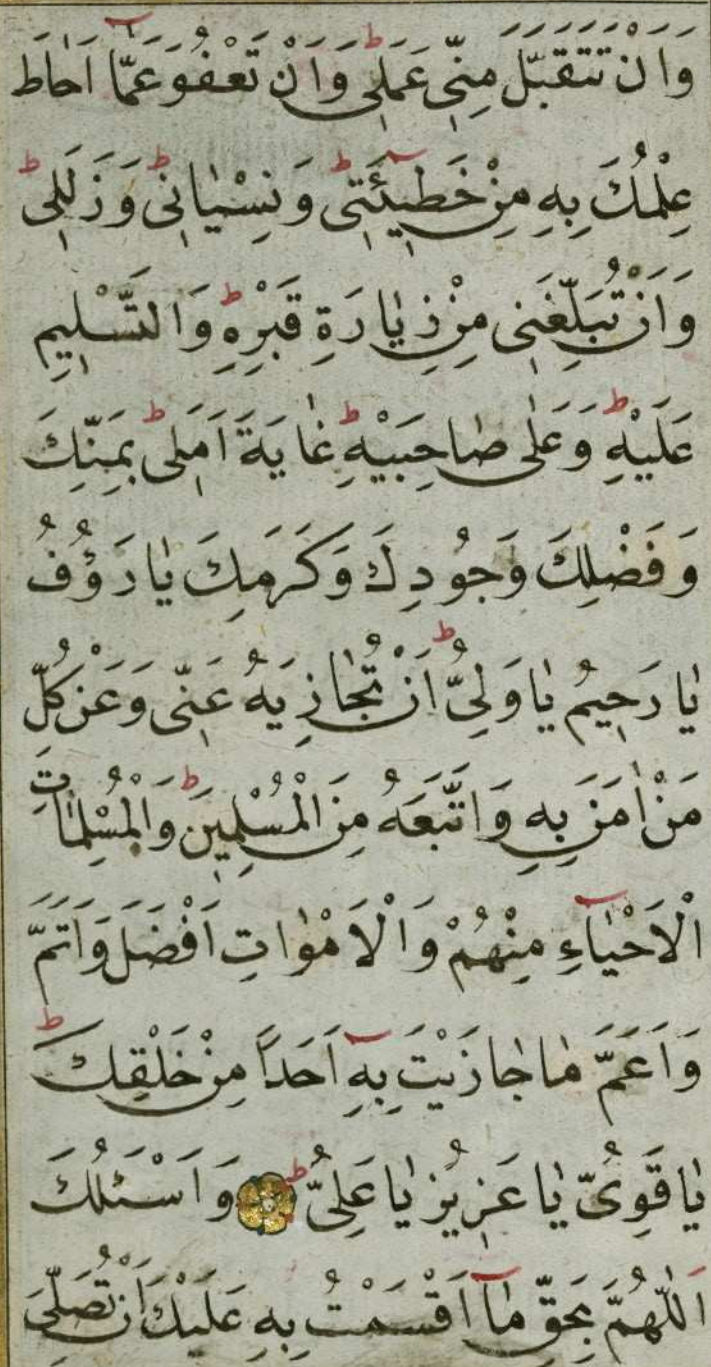 وَاَنْ تَتَقَبَّلَ مِنِّي عَمَلِي وَاَنْ تَعْفُوَ عَمَّا اَحَاطَ
عِلْمُكَ بِهِ مِنْ خَطِيئَتِي وَنِسْيَانِي وَزَلَلِي
وَاَنْ تُبَلِّغَنِي مِنْ زِيَارَةِ قَبْرِهِ وَالتَّسْلِيمِ
عَلَيْهِ وَعَلٰى صَاحِبَيْهِ غَايَةَ اَمَلِي بِمَنِّكَ
وَفَضْلِكَ وَجُودِكَ وَكَرَمِكَ يَا رَؤُفُ
يَا رَحِيمُ يَا وَلِيُّ اَنْ تُجَازِيَهُ عَنِّي وَعَنْ كُلِّ
مَنْ اٰمَنَ بِهِ وَاتَّبَعَهُ مِنَ الْمُسْلِمِينَ وَالْمُسْلِمَاتِ
الْاَحْيَآءِ مِنْهُمْ وَالْاَمْوَاتِ اَفْضَلَ وَاَتَمَّ
وَاَعَمَّ مَا جَازَيْتَ بِهِ اَحَدًا مِنْ خَلْقِكَ
يَا قَوِيُّ يَا عَزِيزُ يَا عَلِيُّ وَاَسْئَلُكَ
اَللّٰهُمَّ بِحَقِّ مَا اَقْسَمْتُ بِهِ عَلَيْكَ اَنْ تُصَلِّيَ